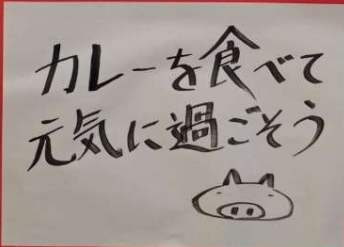 カレーを食べて
元気に過ごそう